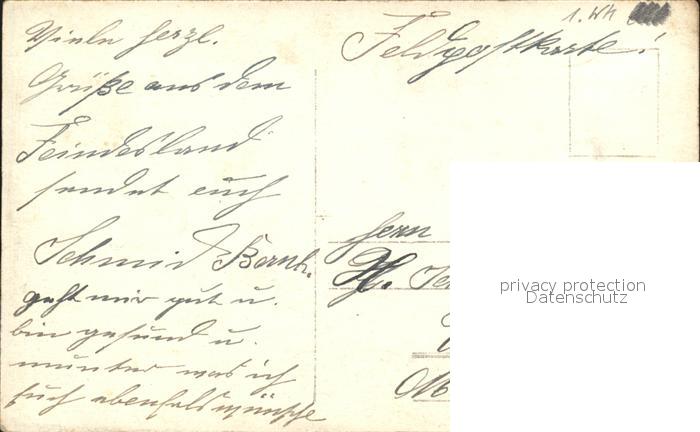 1. WK
Feldpostkarte!
Viele herzl.
Grüße aus dem
Feindesland
sendet euch
Schmid Bernh.
geht mir gut u.
bin gesund u.
munter was ich
euch ebenfals wünsche
Herrn
H.
privacy protection
Datenschutz